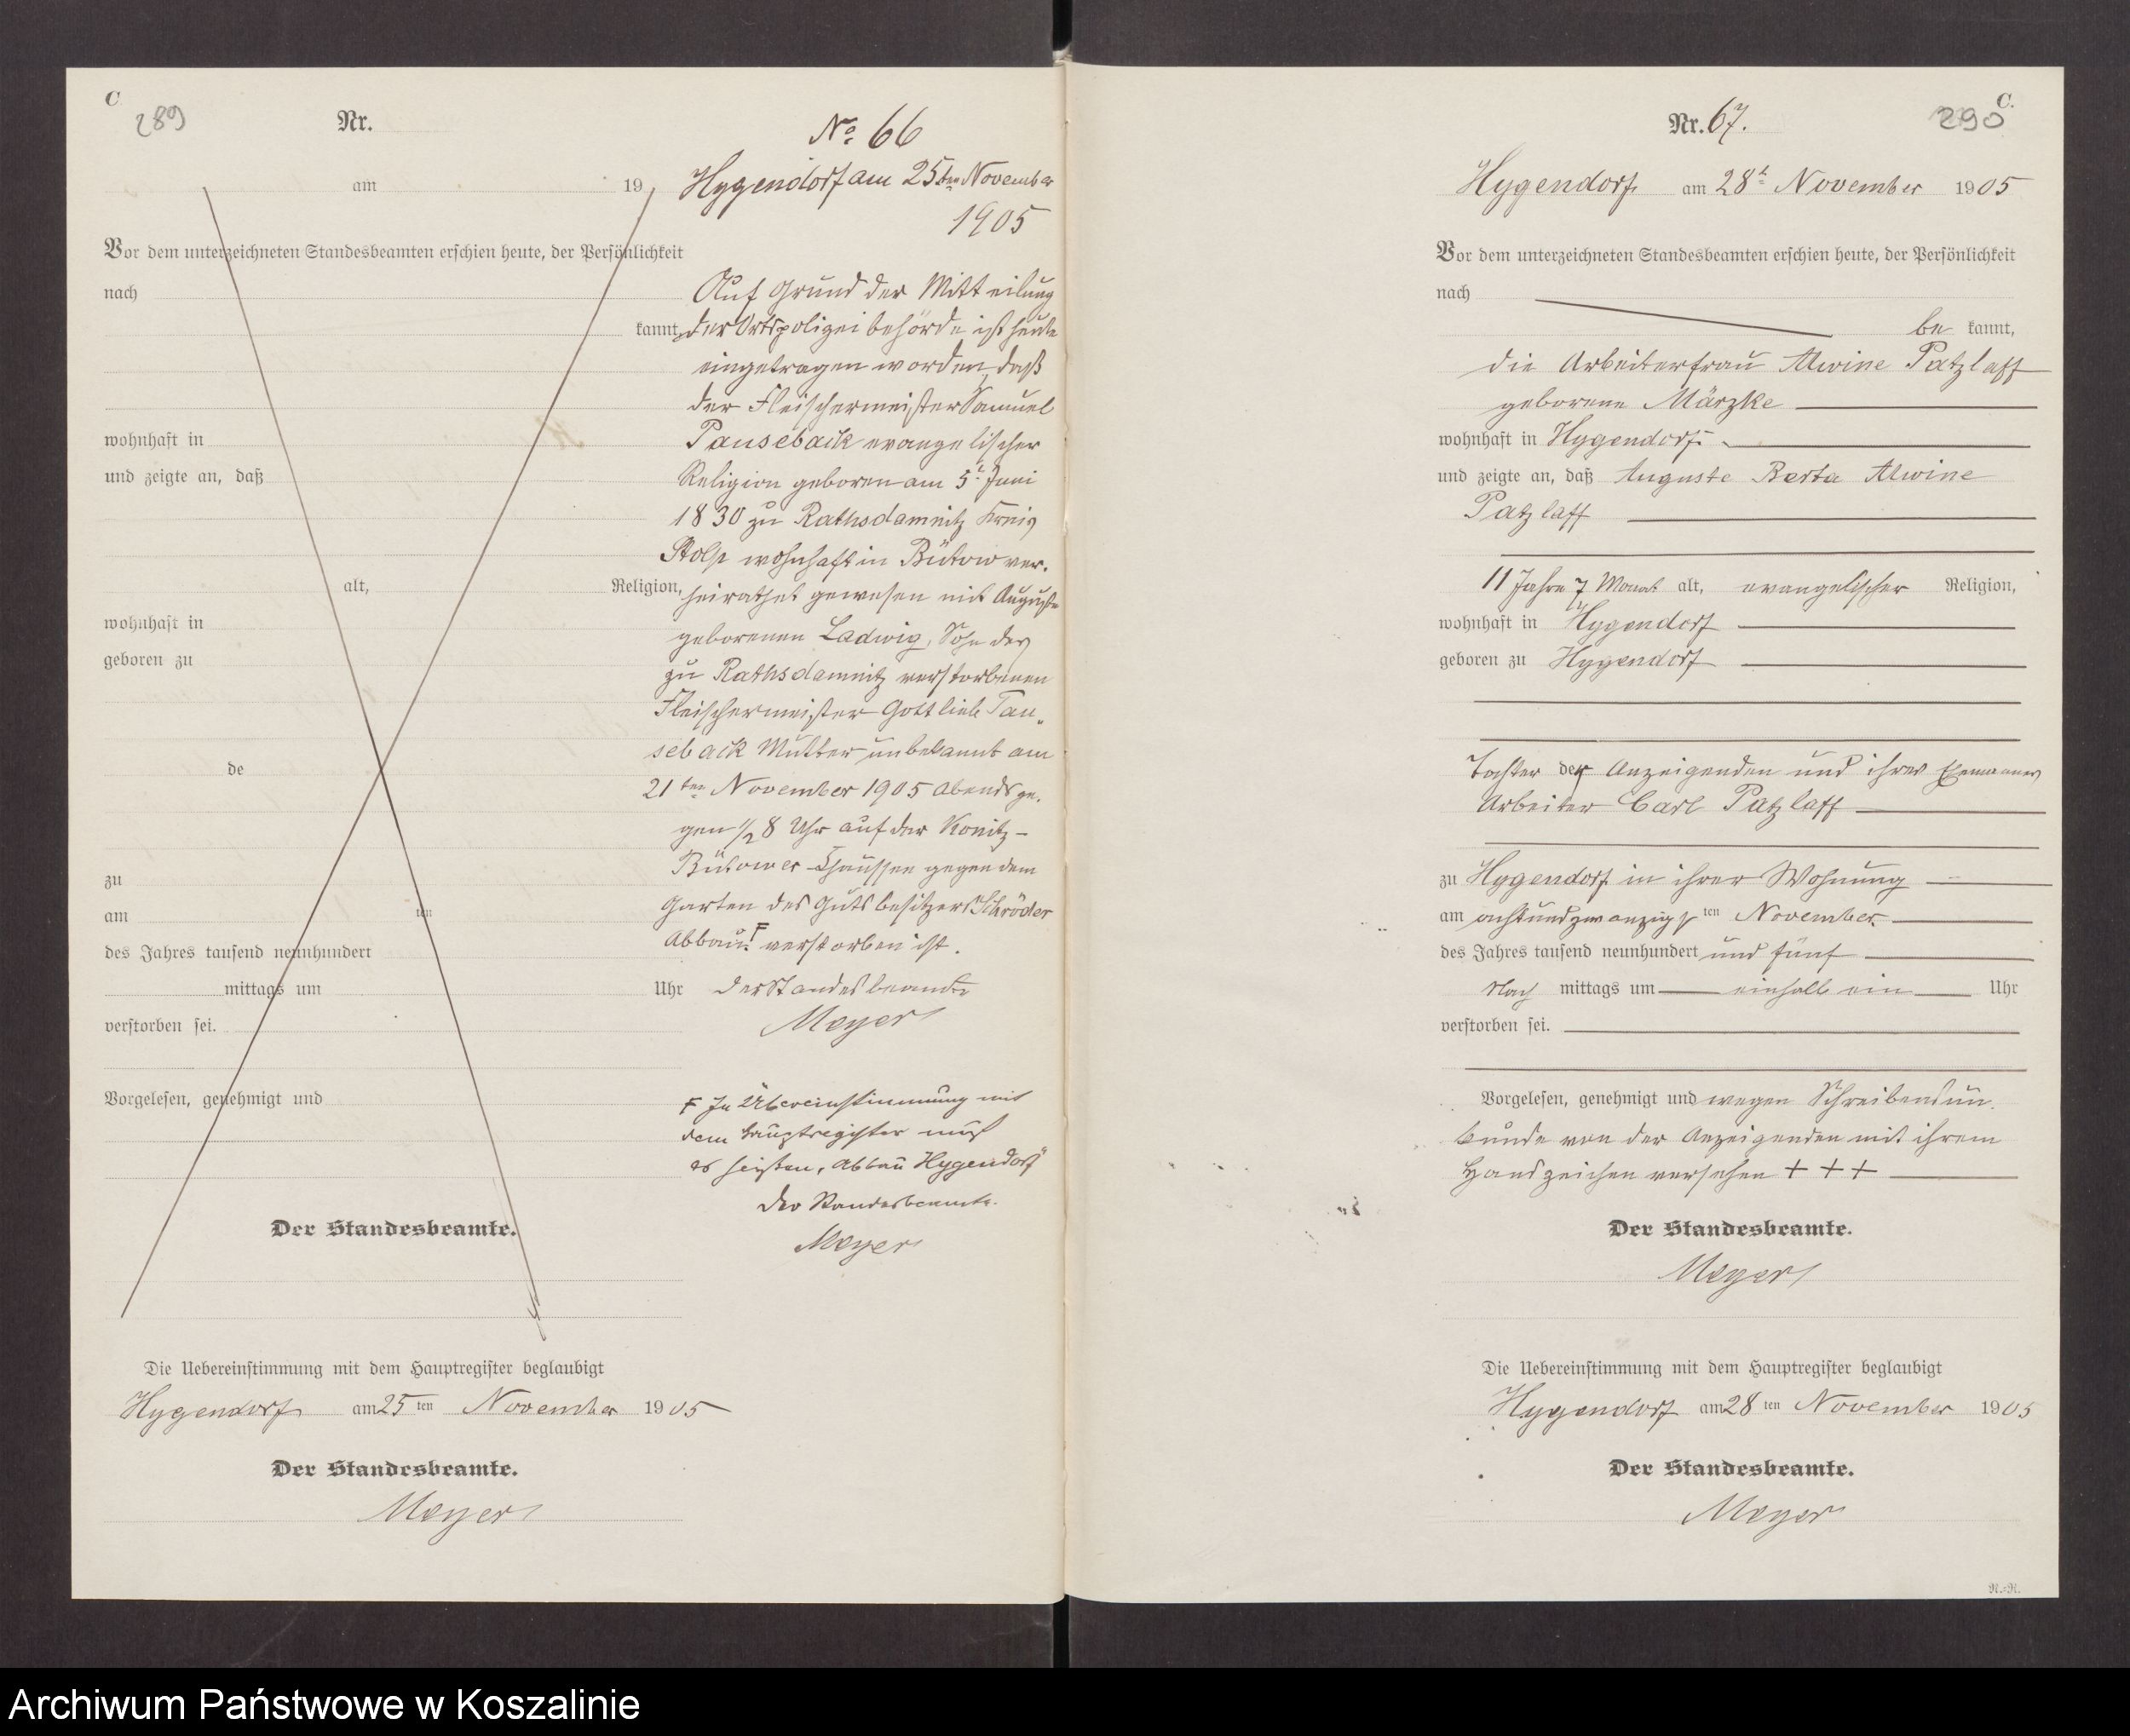 C
289
Nr.
am 19
Vor dem unterzeichneten Standesbeamten erschien heute, der Persönlichkeit
nach
kannt,
wohnhaft in
und zeigte an, daß
alt, Religion,
wohnhaft in
geboren zu
de
zu
am ten
des Jahres tausend neunhundert
mittags um Uhr
verstorben sei.
Vorgelesen, genehmigt und
Der Standesbeamte.
No 66
Hygendorf am 25ten November
1905
Auf Grund der Mitteilung
der Ortspolizeibehörde ist heute
eingetragen worden, daß
der Fleischermeister Samuel
Pauseback evangelischer
Religion geboren am 5t Juni
1830 zu Rathsdamnitz Kreis
Stolp wohnhaft in Bütow ver-
heirathet gewesen mit Auguste
geborenen Ladwig, Sohn des
zu Rathsdamnitz verstorbenen
Fleischermeister Gottlieb Pau-
seback Mutter unbekannt am
21ten November 1905 Abends ge-
gen 1/2 8 Uhr auf der Konitz-
Bütower Chaussee gegen dem
Garten des Gutsbesitzers Schröder
Abbau F verstorben ist.
Der Standesbeamte
Meyer
F In Übereinstimmung mit
dem Hauptregister muß
es heißen, Abbau Hygendorf"
Der Standesbeamte.
Meyer
Die Uebereinstimmung mit dem Hauptregister beglaubigt
Hygendorf am 25 ten November 1905
Der Standesbeamte.
Meyer
C.
290
Nr. 67.
Hygendorf am 28t November 1905
Vor dem unterzeichneten Standesbeamten erschien heute, der Persönlichkeit
nach
be kannt,
die Arbeiterfrau Alwine Patzlaff
geborene Märzke
wohnhaft in Hygendorf
und zeigte an, daß Auguste Berta Alwine
Patzlaff
11 Jahre 7 Monat alt, evangelischer Religion,
wohnhaft in Hygendorf
geboren zu Hygendorf
Tochter der Anzeigenden und ihres Ehemannes
Arbeiter Carl Patzlaff
zu Hygendorf in ihrer Wohnung
am achtundzwanzigs ten November
des Jahres tausend neunhundert und fünf
Nach mittags um einhalb ein Uhr
verstorben sei.
Vorgelesen, genehmigt und wegen Schreibensun-
kunde von der Anzeigenden mit ihrem
Handzeichen versehen + + +
Der Standesbeamte.
Meyer
Die Uebereinstimmung mit dem Hauptregister beglaubigt
Hygendorf am 28 ten November 1905
Der Standesbeamte.
Meyer
N.=N.
Archiwum Państwowe w Koszalinie